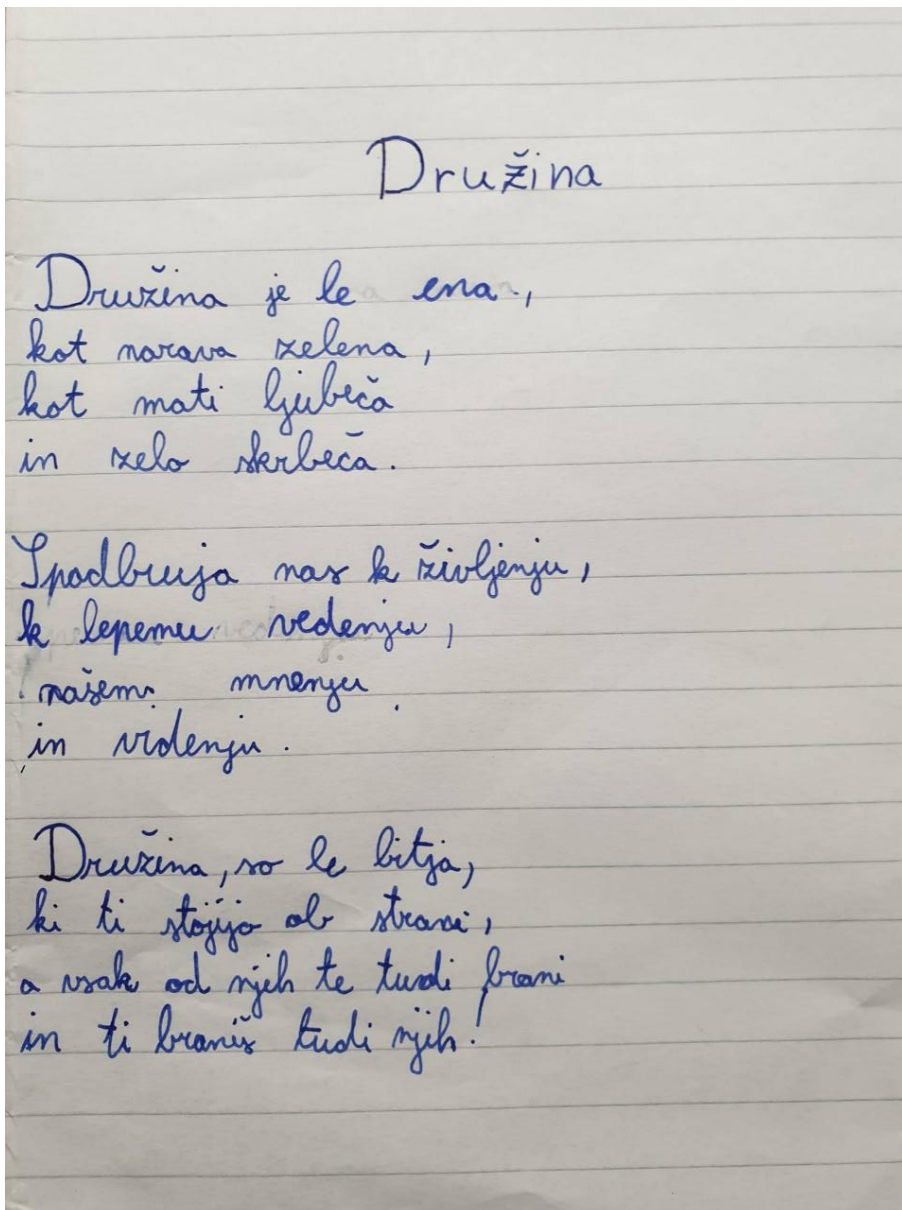 Družina
Družina je le ena,
kot narava zelena,
kot mati ljubeča
in zelo skrbeča.
Spodbuja nas k življenju,
k lepemu vedenju,
našem mnenju
in videnju.
Družina, so le bitja,
ki ti stojijo ob strani,
a vsak od njih te tudi brani
in ti braniš tudi njih!